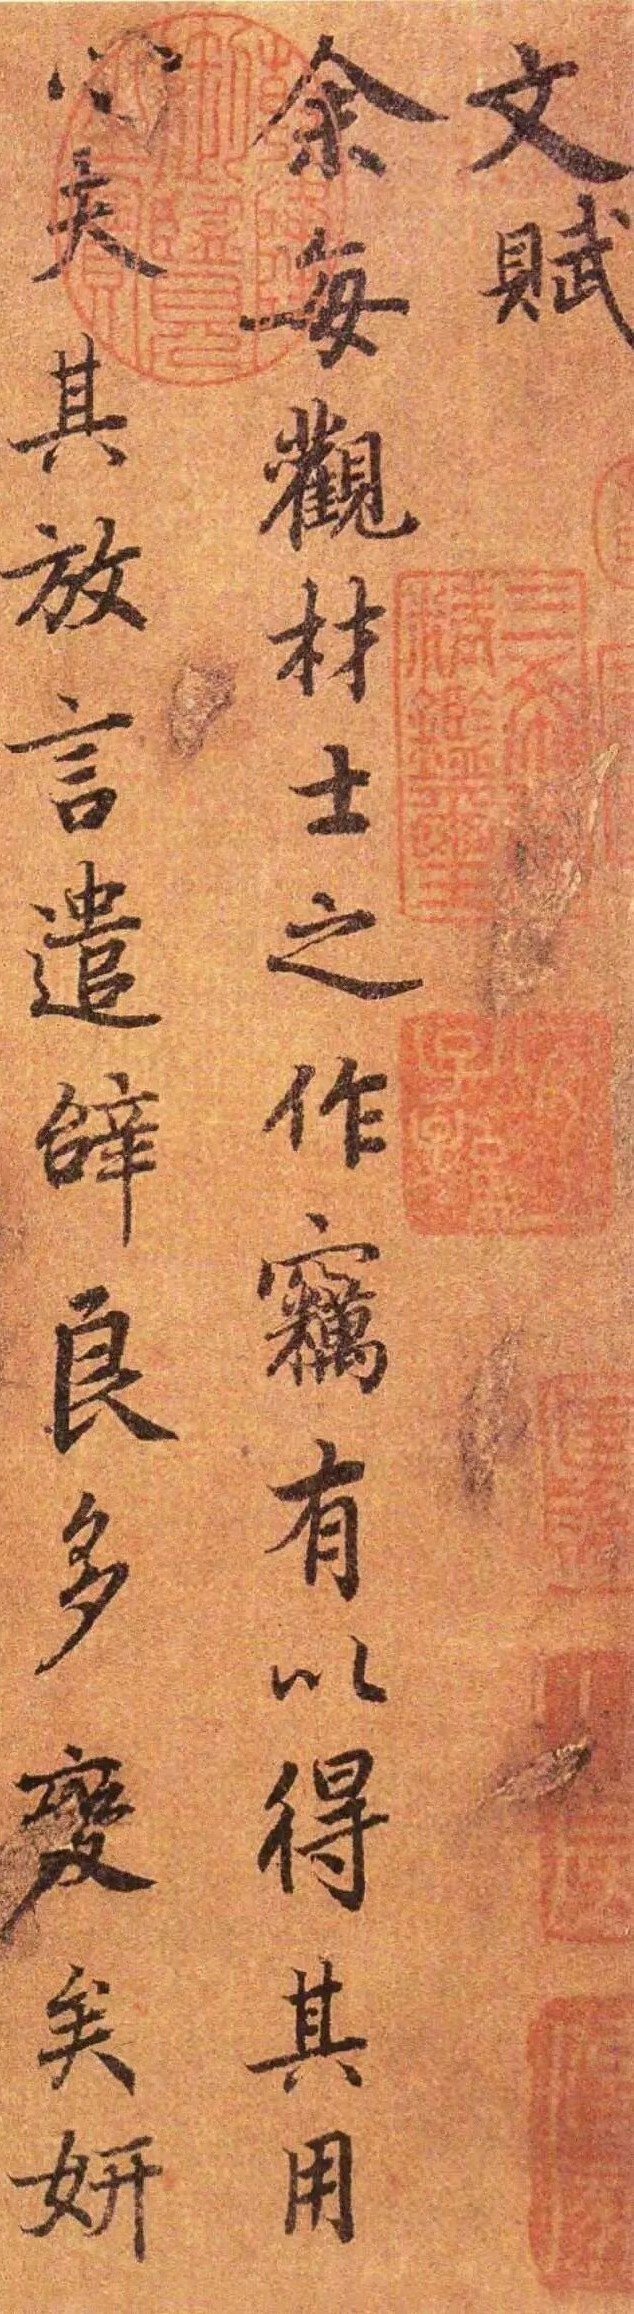 文賦
余每觀材士之作竊有以得其用
心夫其放言遣辭良多變矣妍